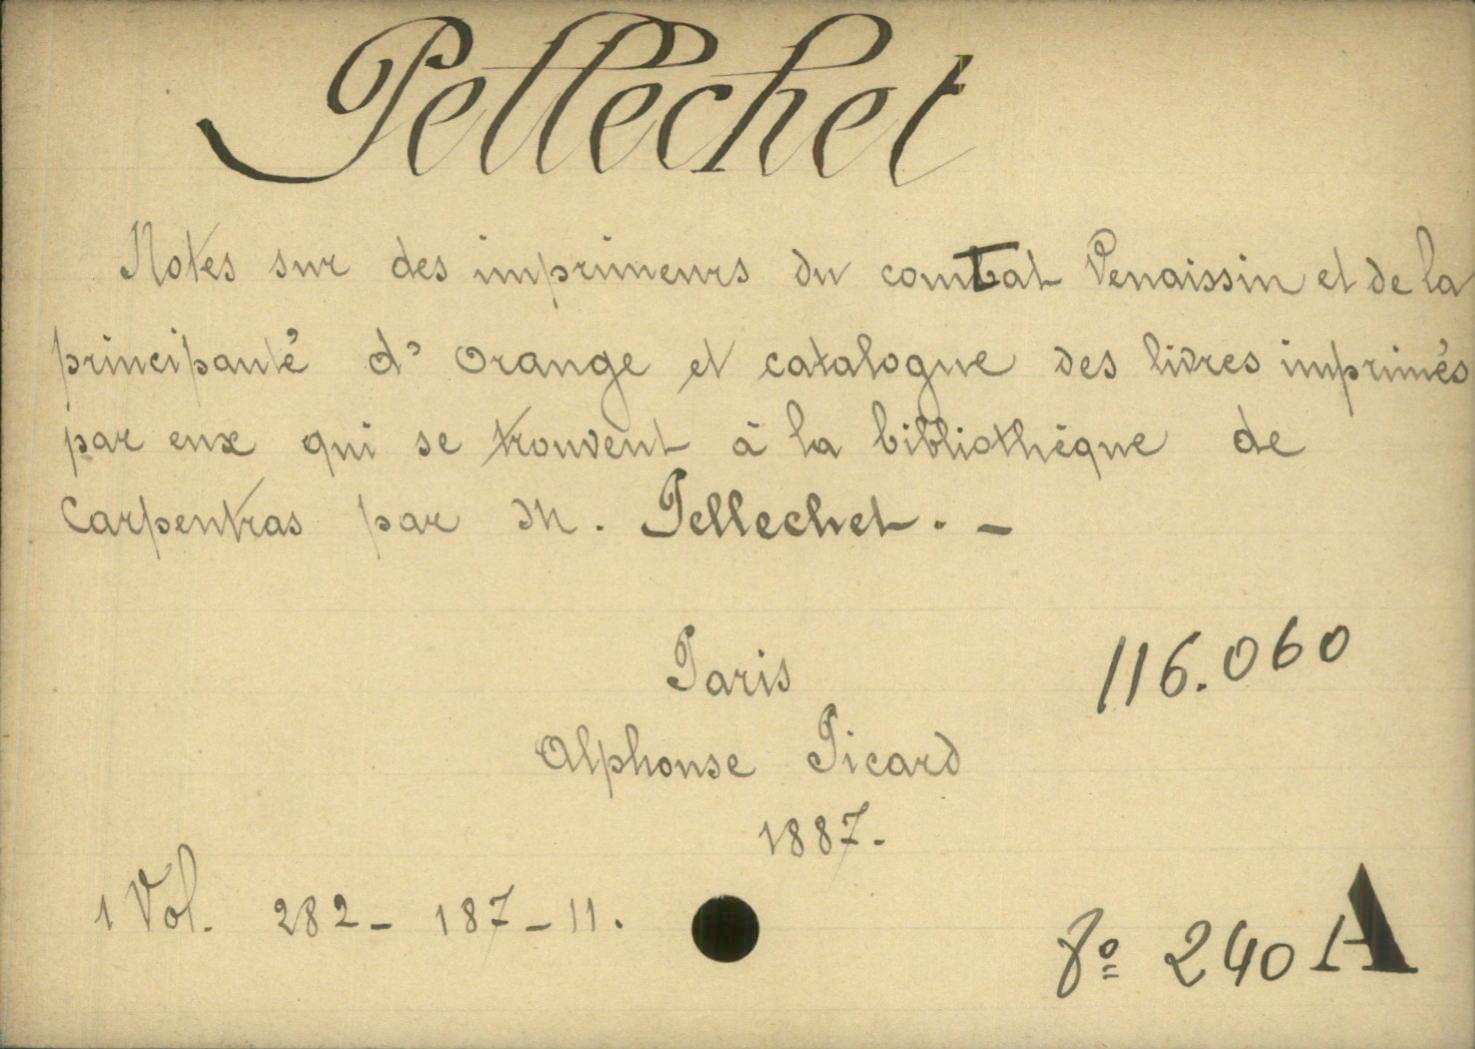 Pellechet
Notes sur des imprimeurs du comtat Venaissin et de la
principauté d'Orange et catalogue des livres imprimés
par eux qui se trouvent à la bibliothèque de
Carpentras par M. Pellechet. -
Paris
116.060
Alphonse Picard
1887.-
1 Vol. 282 - 187 - 11.
8º 240 A